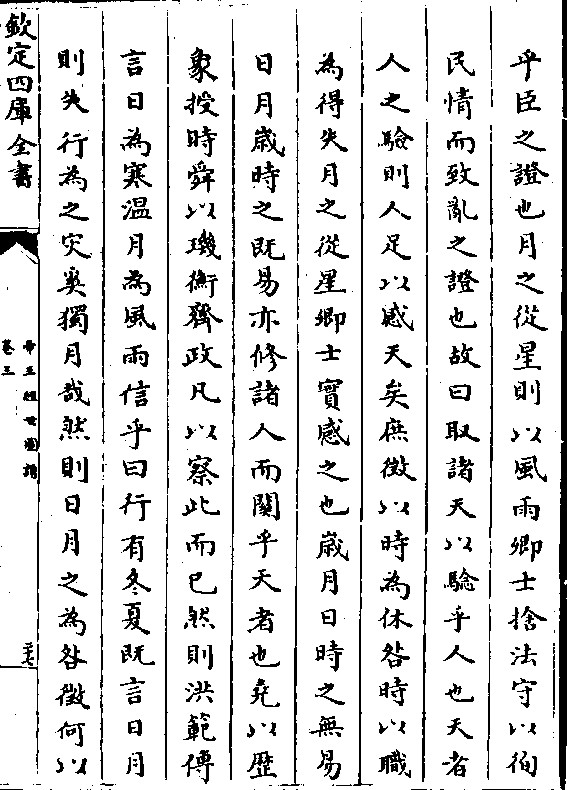 乎臣之證也月之從星則以風雨卿士捨法守以徇
民情而致亂之證也故曰取諸天以驗乎人也天者
人之驗則人足以感天矣庶徴以時為休咎時以職
為得失月之從星卿士實感之也歳月日時之無易
日月歳時之既易亦修諸人而關乎天者也堯以歴
象授時舜以璣衡齊政凡以察此而已然則洪範傳
言日為寒温月為風雨信乎曰行有冬夏既言日月
則失行為之灾奚獨月哉然則日月之為咎徴何以
欽定四庫全書
帝王經世圖譜
卷三